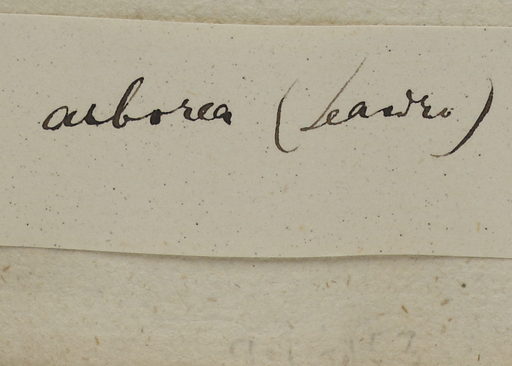 arborea (Leandro)